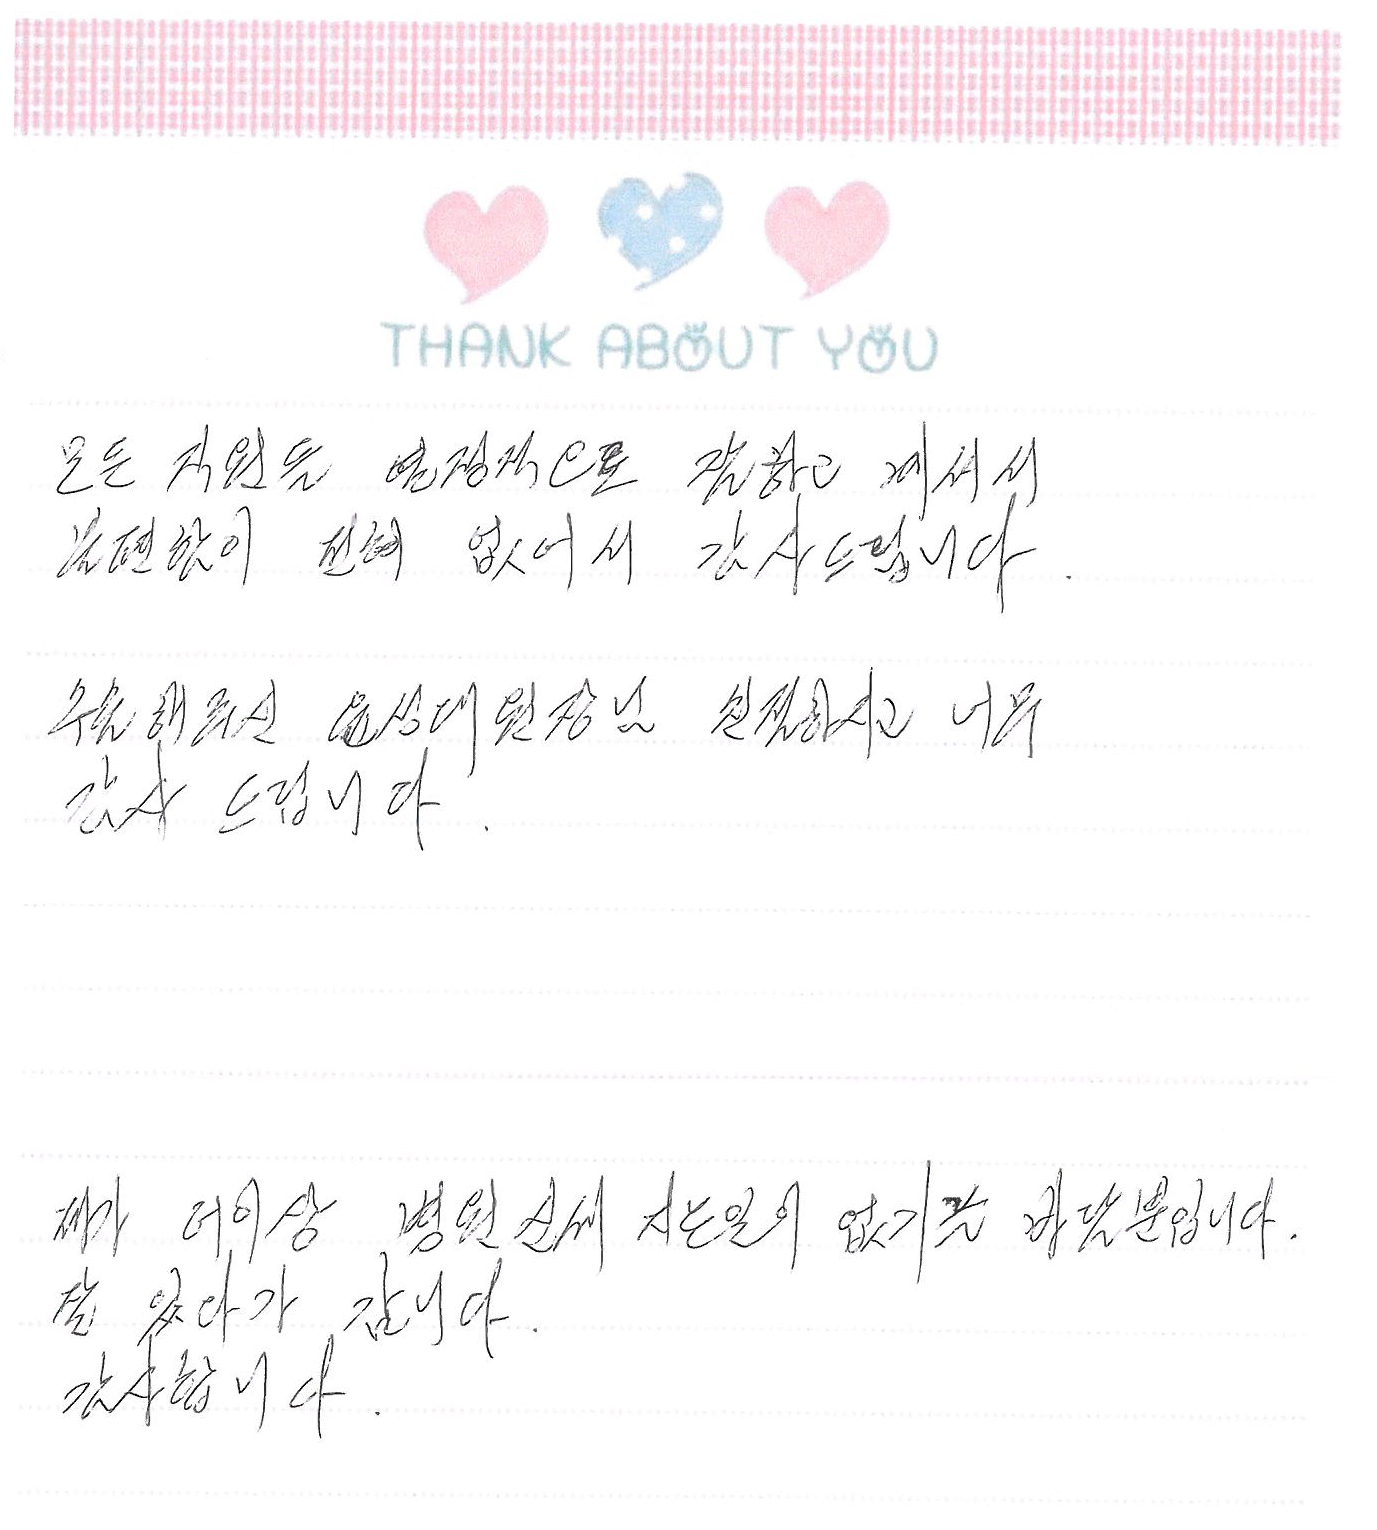 THANK ABOUT YOU
모든 직원들 열정적으로 잘하고 계셔서
불편함이 전혀 없어서 감사드립니다.
수술해주신 윤성대원장님 친절하시고 너무
감사 드립니다.
제가 더이상 병원신세 지는일이 없기를 바랄뿐입니다.
잘 있다가 갑니다.
감사합니다.